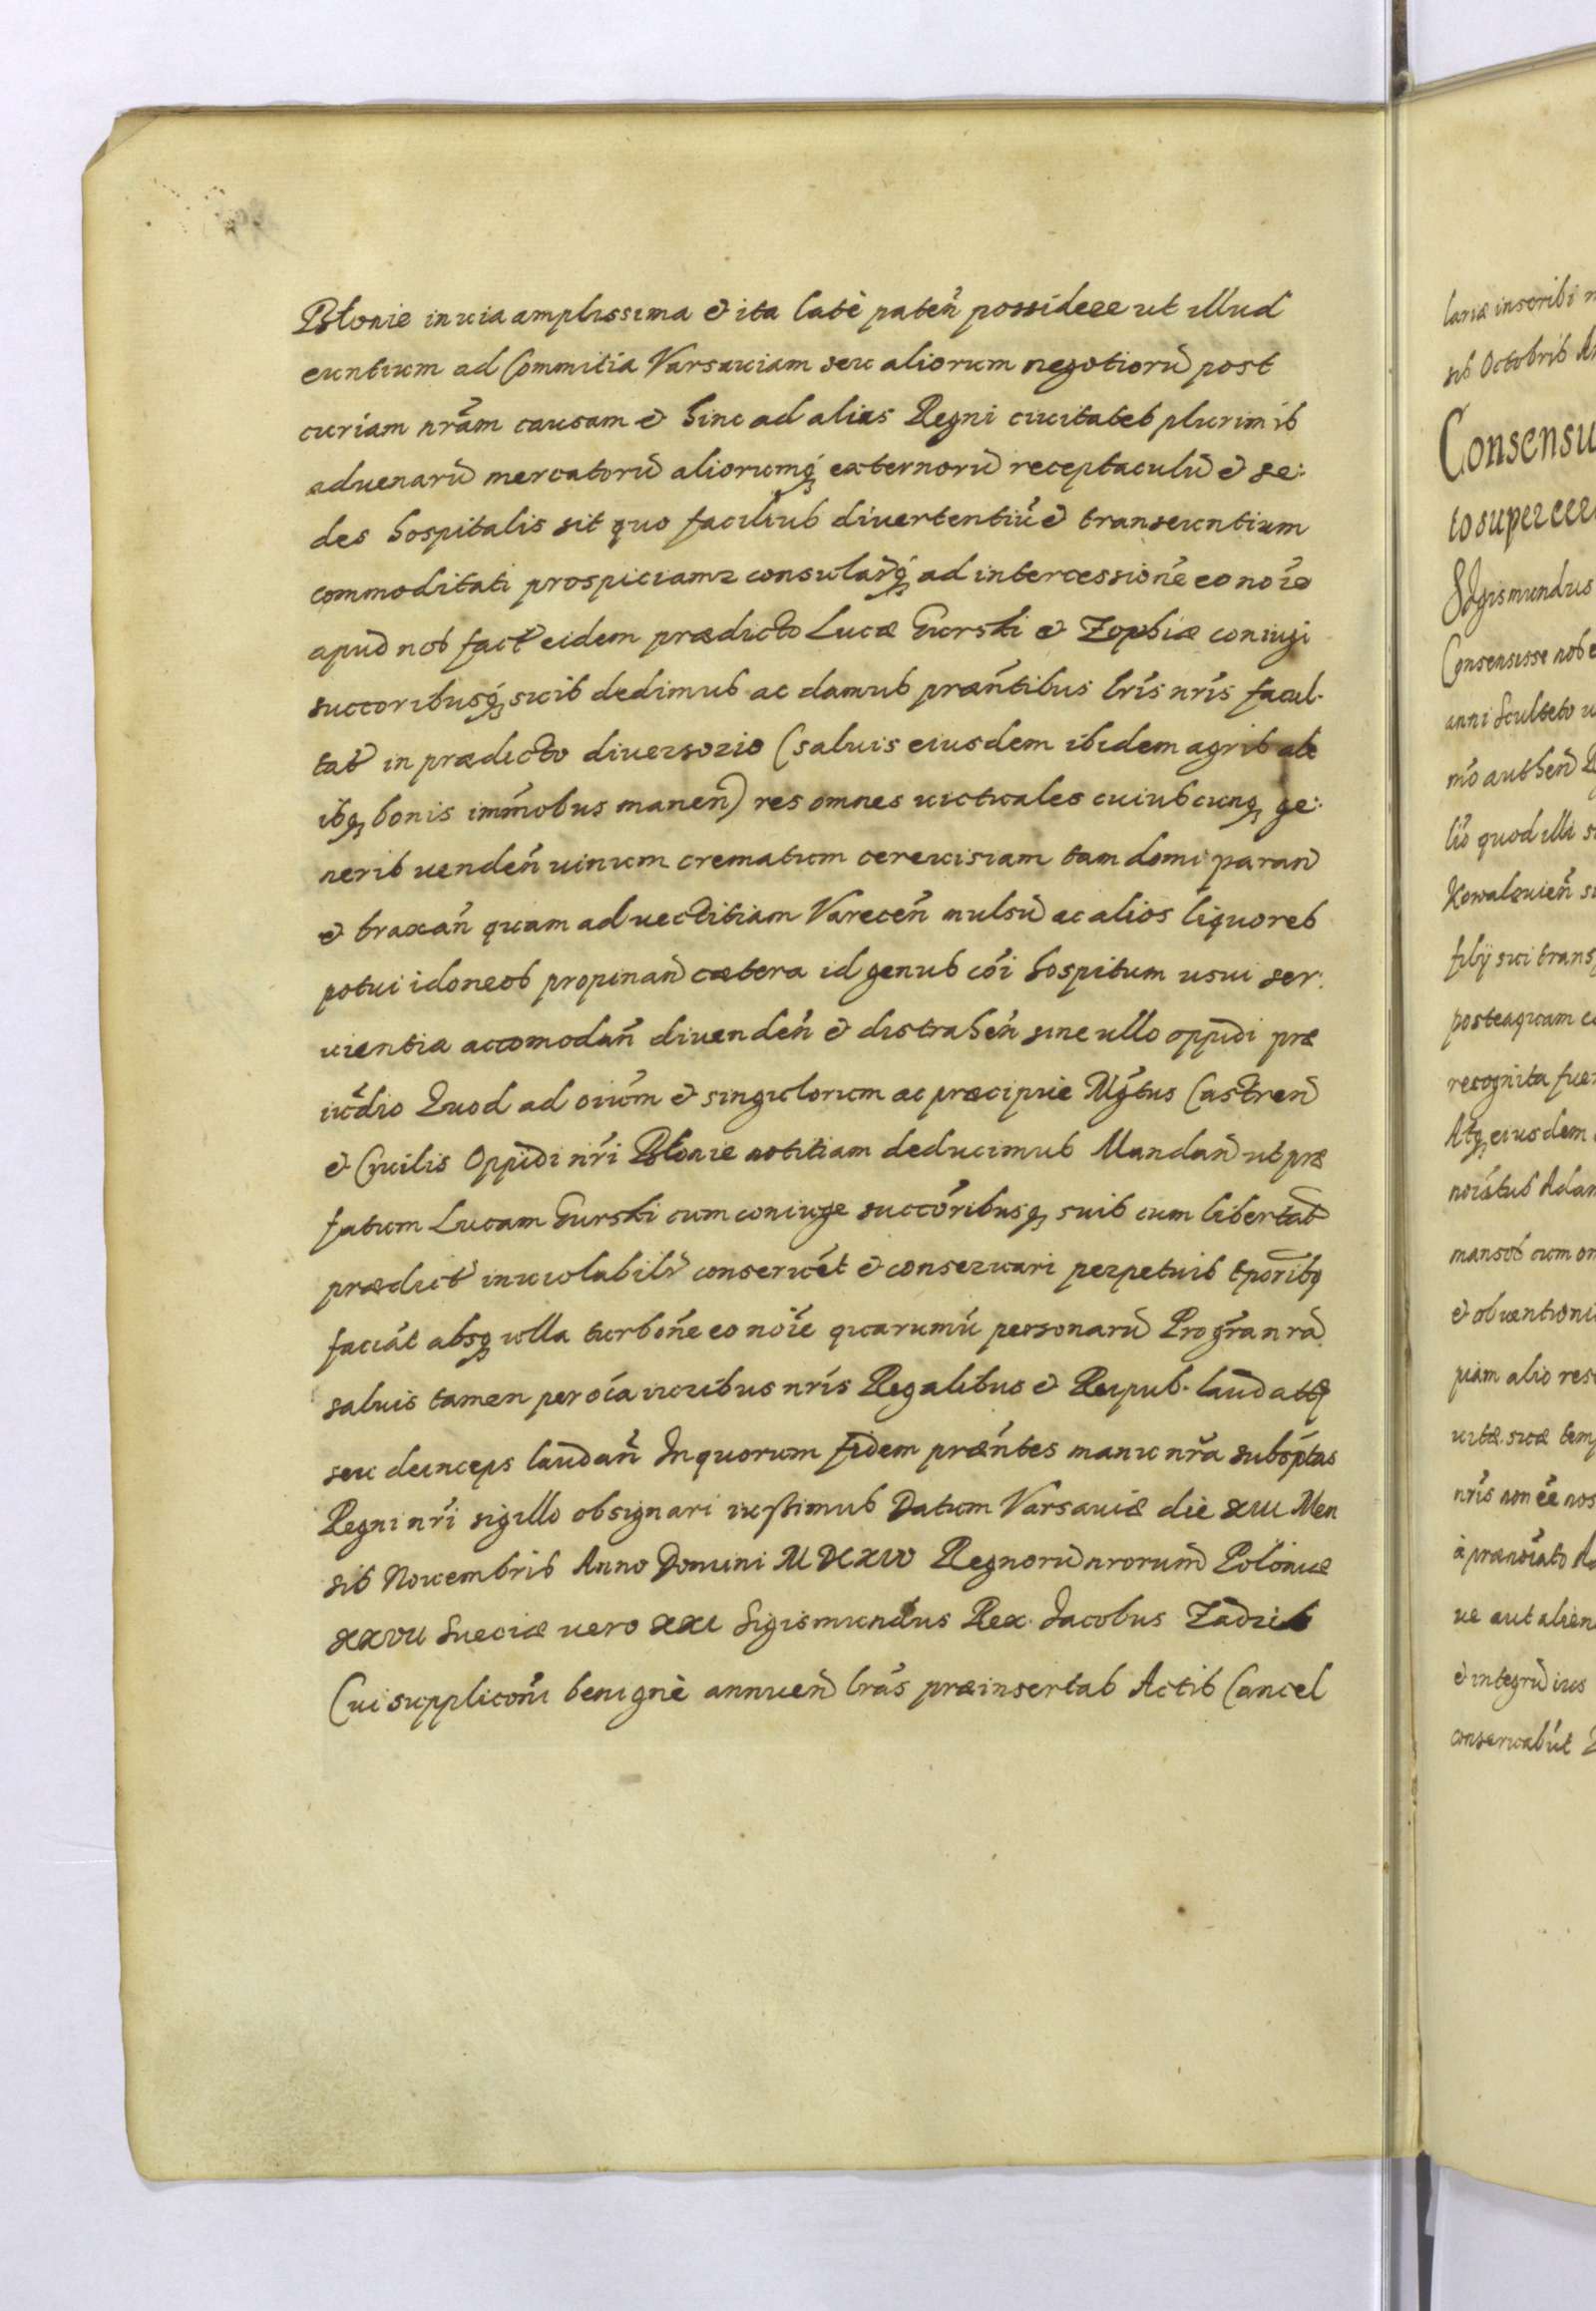 Błonie in uia amplissima et ita latè pateñ possidere ut illud
euntium ad Commitia Varsauiam seu aliorum negotiorũ post
curiam nr̃am causam et hinc ad alias Regni ciuitates plurimis
aduenarũ mercatorũ aliorumq́ externorũ receptaculũ et se:
des hospitalis sit quo facilius diuertentiũ et transeuntium
commoditati prospiciamr consularq́ ad intercessionẽ eo noĩe
apud nos fact eidem prædicto Lucæ Gurski et Zophiæ coniugi
succoribusq́ suis dedimus ac damus præñtibus lr̃is nr̃is facul-
tat in prædicto diuersorio (saluis eiusdem ibidem agris ale
ibq bonis imm̃obus maneñ) res omnes uictuales cuiuscunq ge:
neris uendeñ uinum crematum cereuisiam tam domi paran̄
et braxañ quam aduectitiam Vareceñ mulsũ ac alios liquores
potui idoneos propinan̄ cætera id genus cõi hospitum usui ser:
uientia accomodañ diuendeñ et distraheñ sine ullo oppidi præ
iud̃io Quod ad oĩum et singulorum ac præcipue Mg̃tus Castren̄
et Ciuilis Oppidi nr̃i Błonie notitiam deducimus Mandan̄ ut præ
fatum Lucam Gurski cum coniuge succõribusq suis cum libertat
prædict inuiolabilr conseruẽt et conseruari perpetuis tp̃oribq
faciãt absq ulla turbõne eo noĩe quarumũ personarũ Pro gr̃a nrã
saluis tamen per oĩa iuribus nr̃is Regalibus et Reipub. laudatq
seu deinceps laudañ In quorum fidem præñtes manu nr̃a subsc̃ptas
Regni nr̃i sigillo obsignari iussimus Datum Varsauiæ die XIII Men
sis Nouembris Anno Domini MDCXIV Regnorũ nrorum̄ Poloniæ
XXVII Sueciæ uero XXI Sigismundus Rex. Jacobus Zadzik
Cui supplicoñi benignè annuen̄ lr̃as præinsertas Actis Cancel
lariæ inscribi
sis Octobris
Consensu
to super
Sigismundus
Consensisse nob
anni Sculteto
mo authen̄
lio quod illi
Kowalouieñ
filij sui trans
posteaquam
recognita fue
Atq eiusdem
noĩatus Adam
mansos cum
et obuentioni
piam alio
uitæ suæ temp
nr̃is non eẽ nos
à prænoĩato
ue aut alien
et integrũ ius
conseruabũt